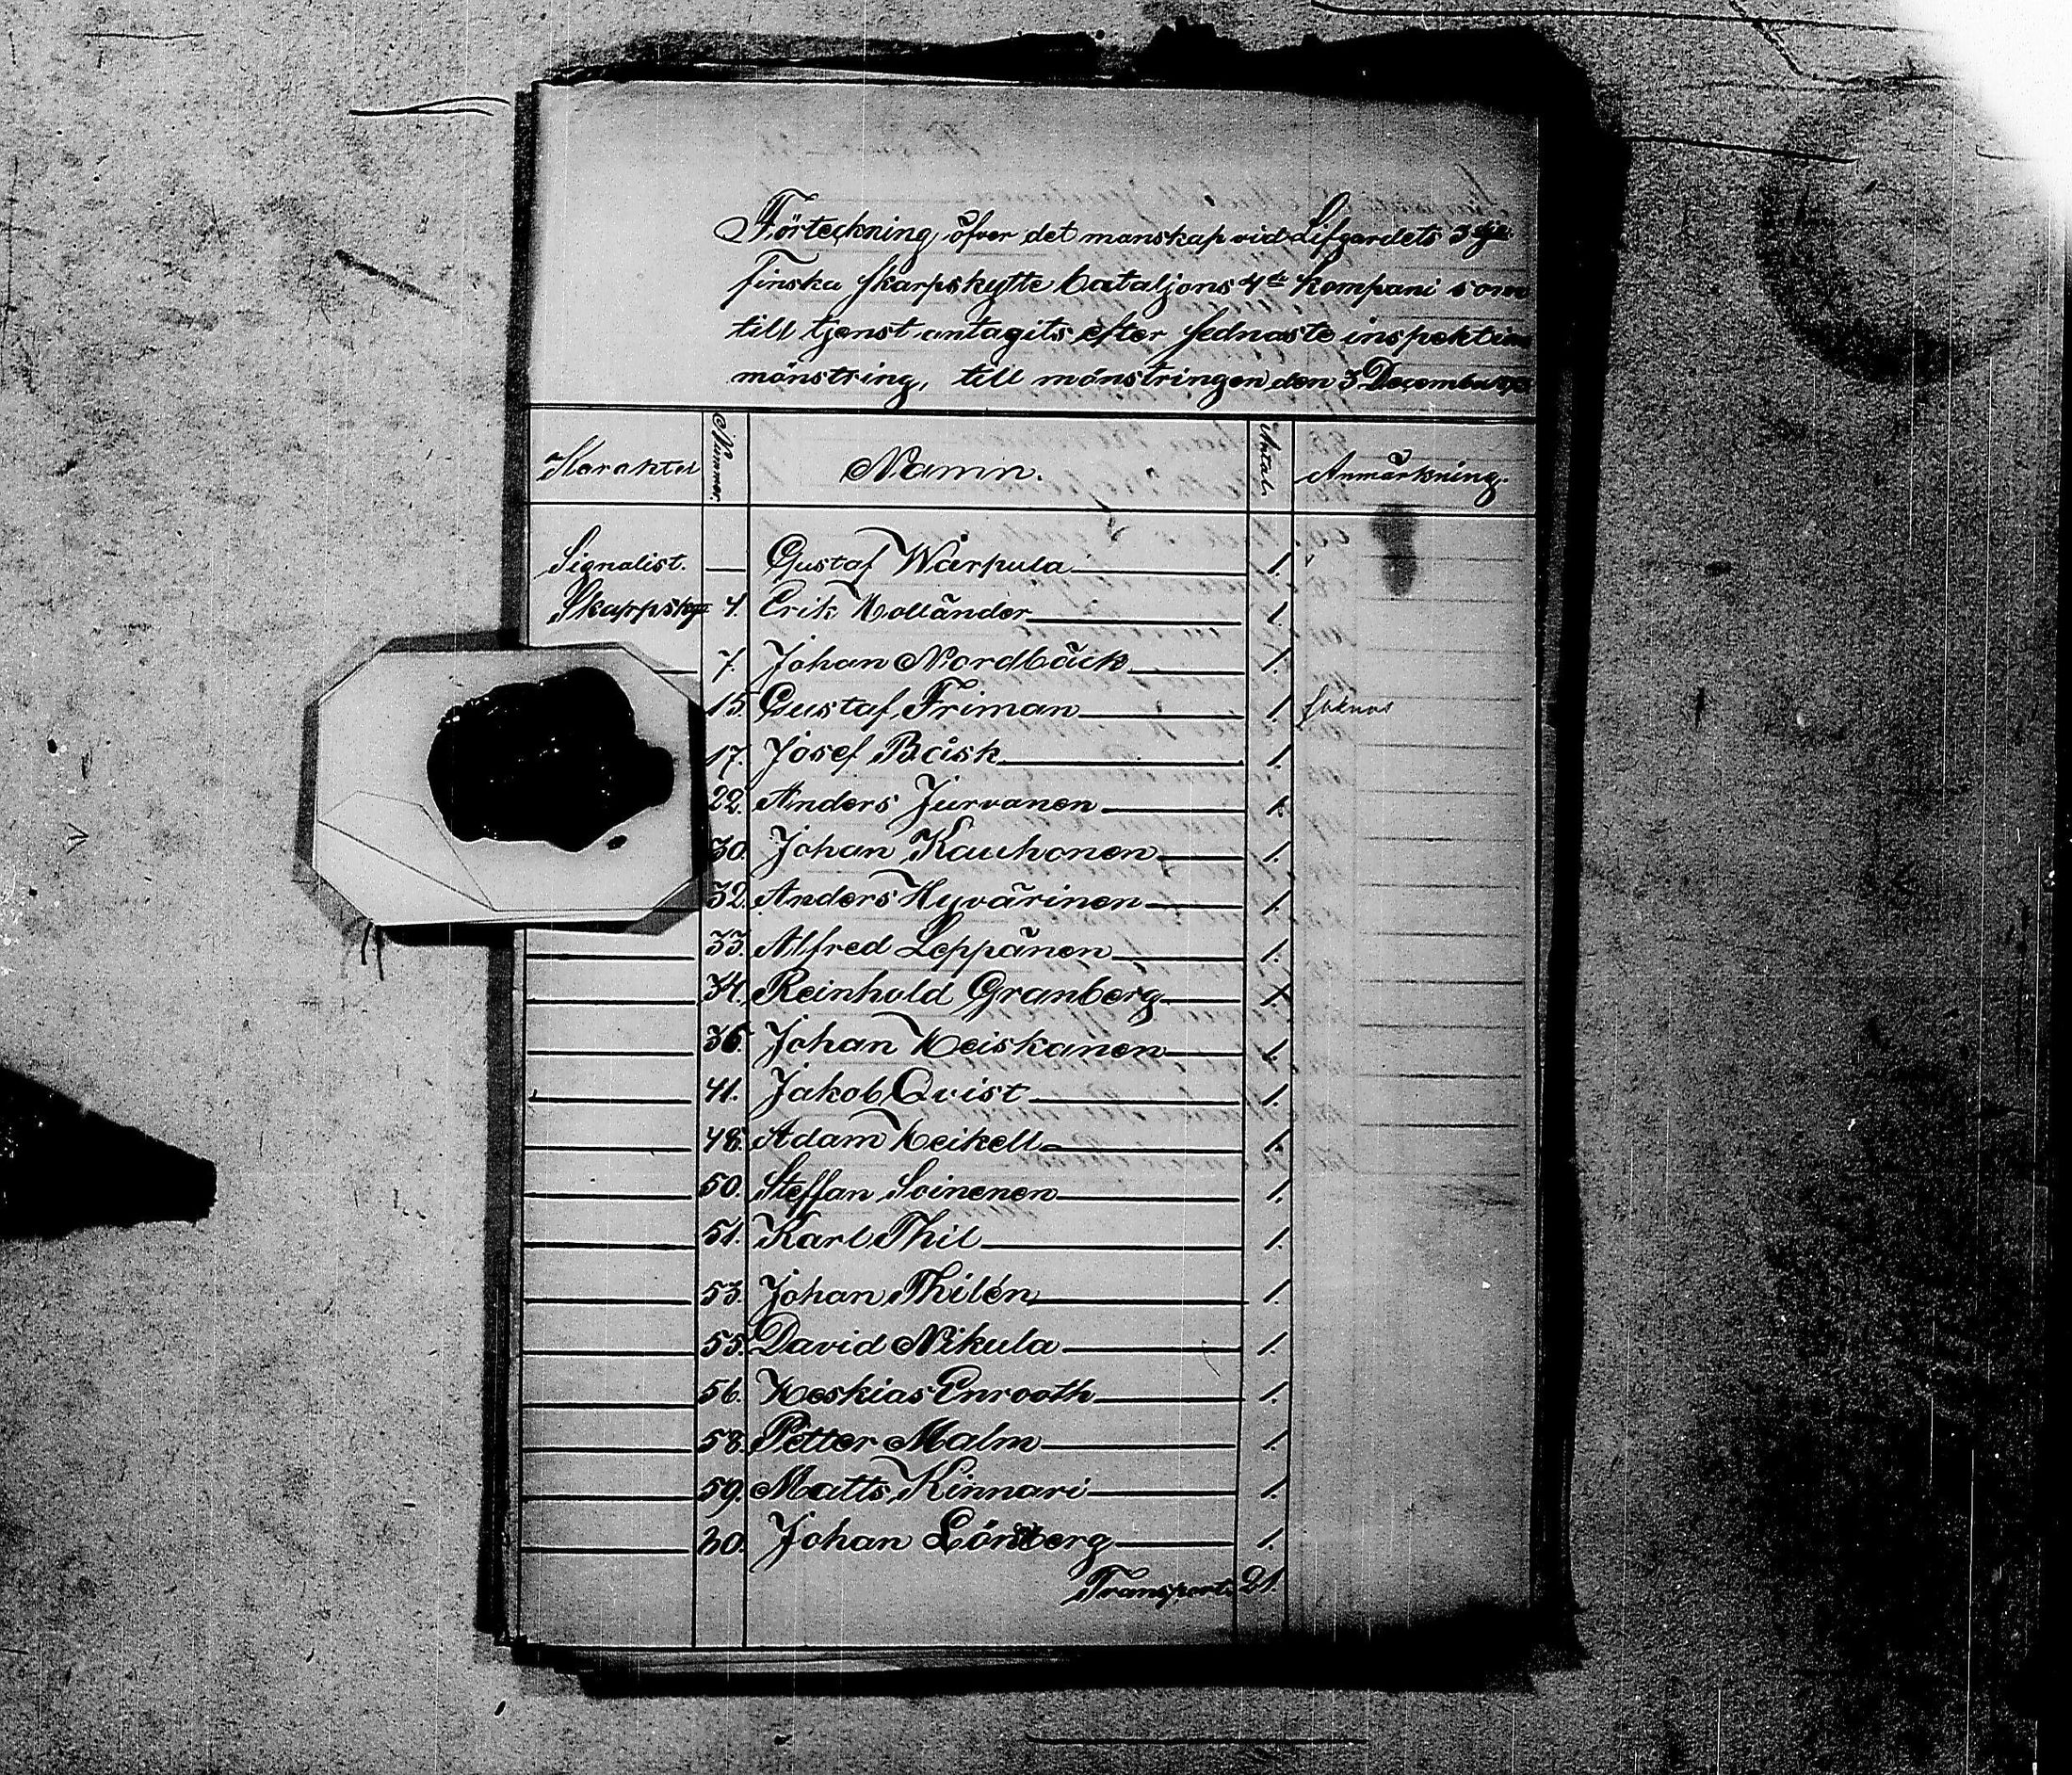 Förteckning öfver det manskap vid Lifgardets 3dje
Finska Skarpskytte bataljons 4de kompani som
till tjenst antagits efter sednaste inspektion
mönstring, till mönstringen den 3 December
Karakter Nummer. Namn. Antal. Anmärkning.
Signalist. — Gustaf Warpula 1.
Skarpsky 4. Erik Holländer 1.
7. Johan Nordbäck 1.
15. Gustaf Friman 1. saknas
17. Josef Bäsk 1.
22. Anders Jurvanen 1.
30. Johan Kauhonen 1.
32. Anders Hyvärinen 1.
33. Alfred Leppänen 1.
34. Reinhold Granberg 1.
36. Johan Heiskanen 1.
41. Jakob Qvist 1.
48. Adam Heikell 1.
50. Steffan Soinenen 1.
51. Karl Thil 1.
53. Johan Thilén 1.
55. David Nikula 1.
56. Heskias Enrooth 1.
58. Petter Malm 1.
59. Matts Kinnari 1.
60. Johan Lönberg 1.
Transport 21.